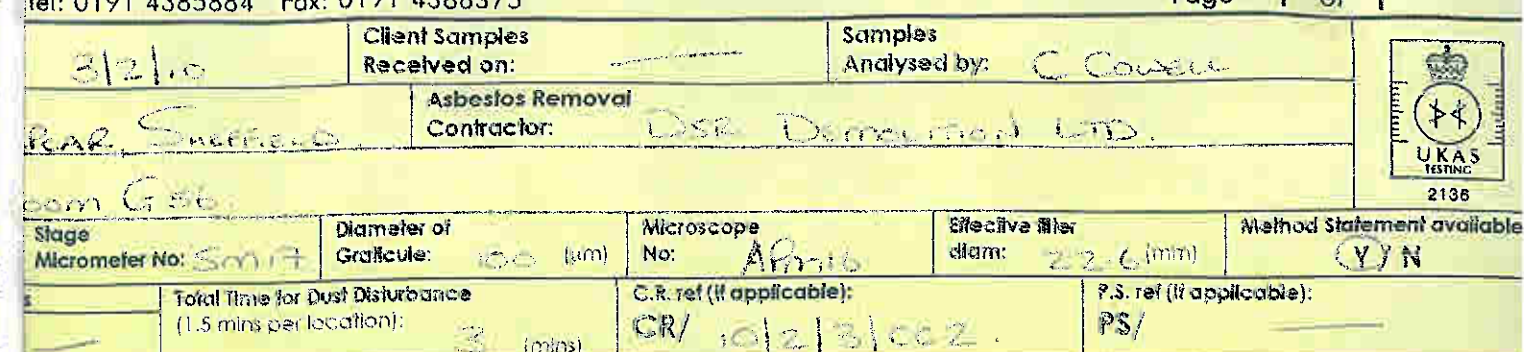 Tel: 0191 4385884 Fax: 0191 4388375 Page 1 of 1
3/2/10 Client Samples Received on: Samples Analysed by: C Cowell
Sheffield. Asbestos Removal Contractor: DSR Demolition LTD.
UKAS TESTING
2136
oom G
Stage Micrometer No: SM17 Diameter of Graticule: 100 (µm) Microscope No: APM16 Effective filter diam: 22.6 (mm) Method Statement available Y / N
Total Time for Dust Disturbance (1.5 mins per location): 3 (mins) C.R. ref (if applicable): CR/ 10/2/3/CC2. P.S. ref (if applicable): PS/